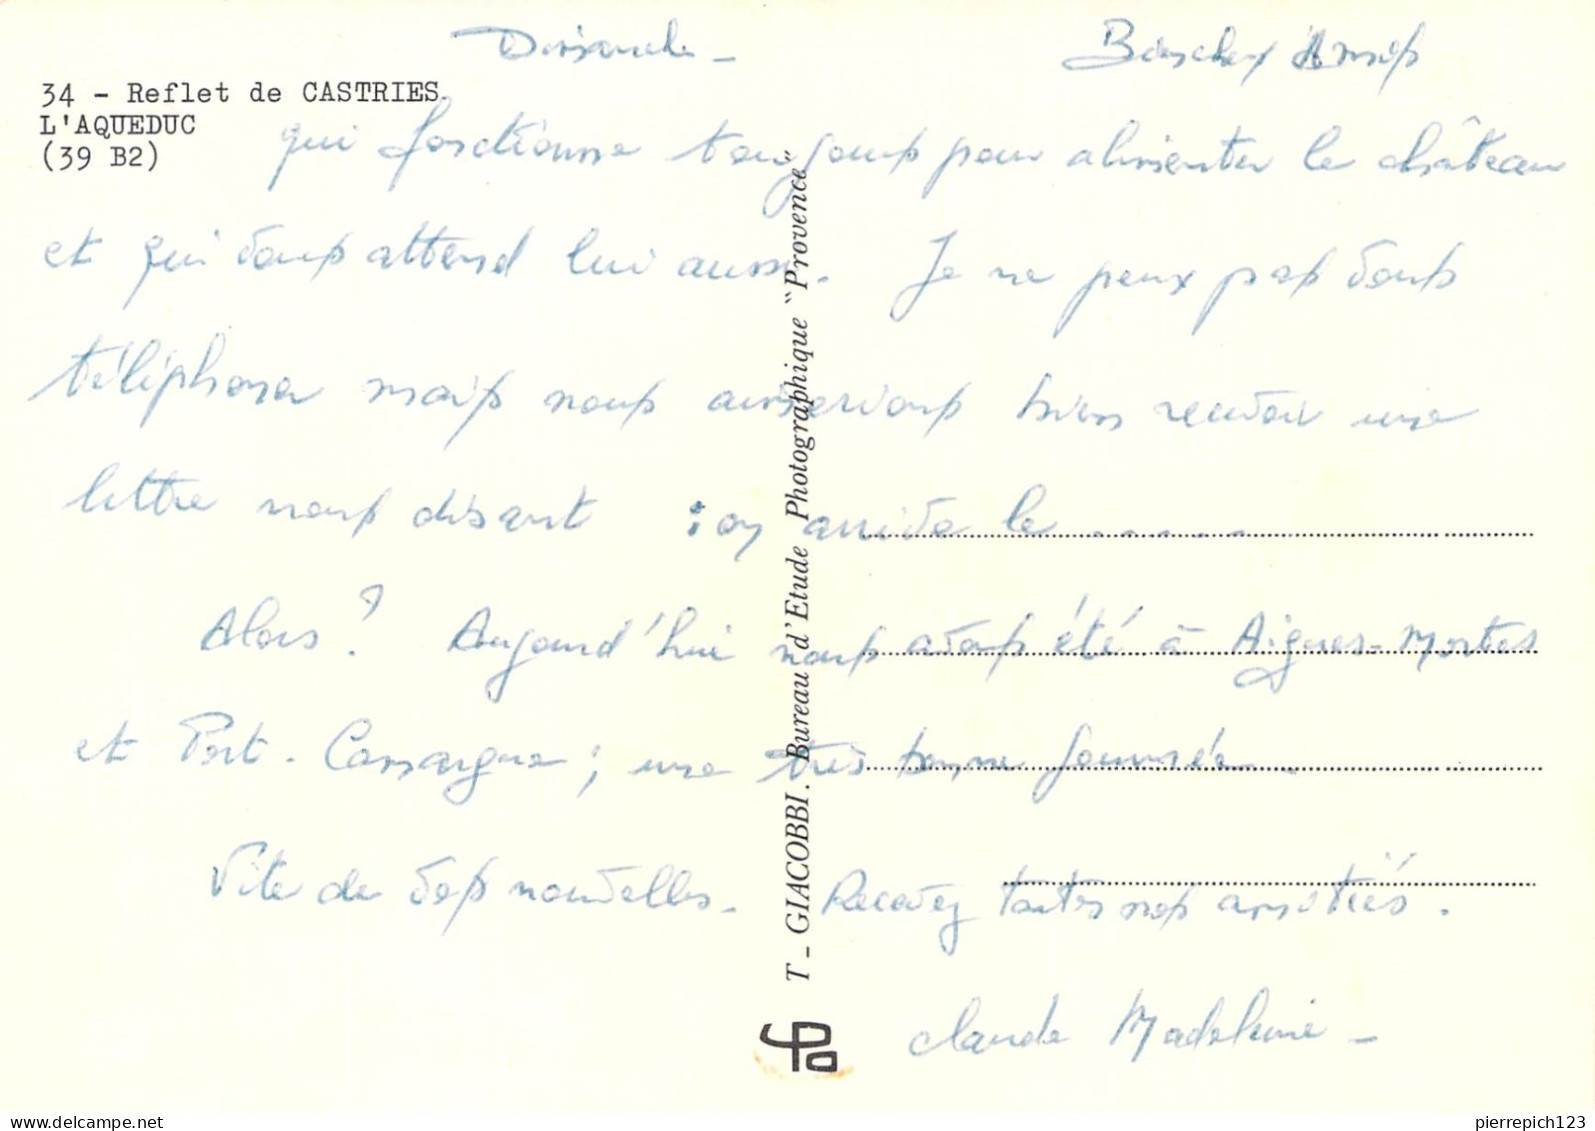 Dimanche - Biens chers Amis
34 - Reflet de CASTRIES.
L'AQUEDUC
(39 B2)
qui fonctionne toujours pour alimenter le château
et qui vous attend lui aussi. Je ne peux pas vous
téléphoner mais nous aimerions bien recevoir une
lettre nous disant : on arrive le ......
Alors ? Aujourd'hui nous avons été à Aigues-Mortes
et Port-Camargue ; une très bonne journée.
Vite de vos nouvelles. Recevez toutes nos amitiés.
Claude Madeleine -
T - GIACOBBI. Bureau d'Etude Photographique "Provence"
pierrepich123